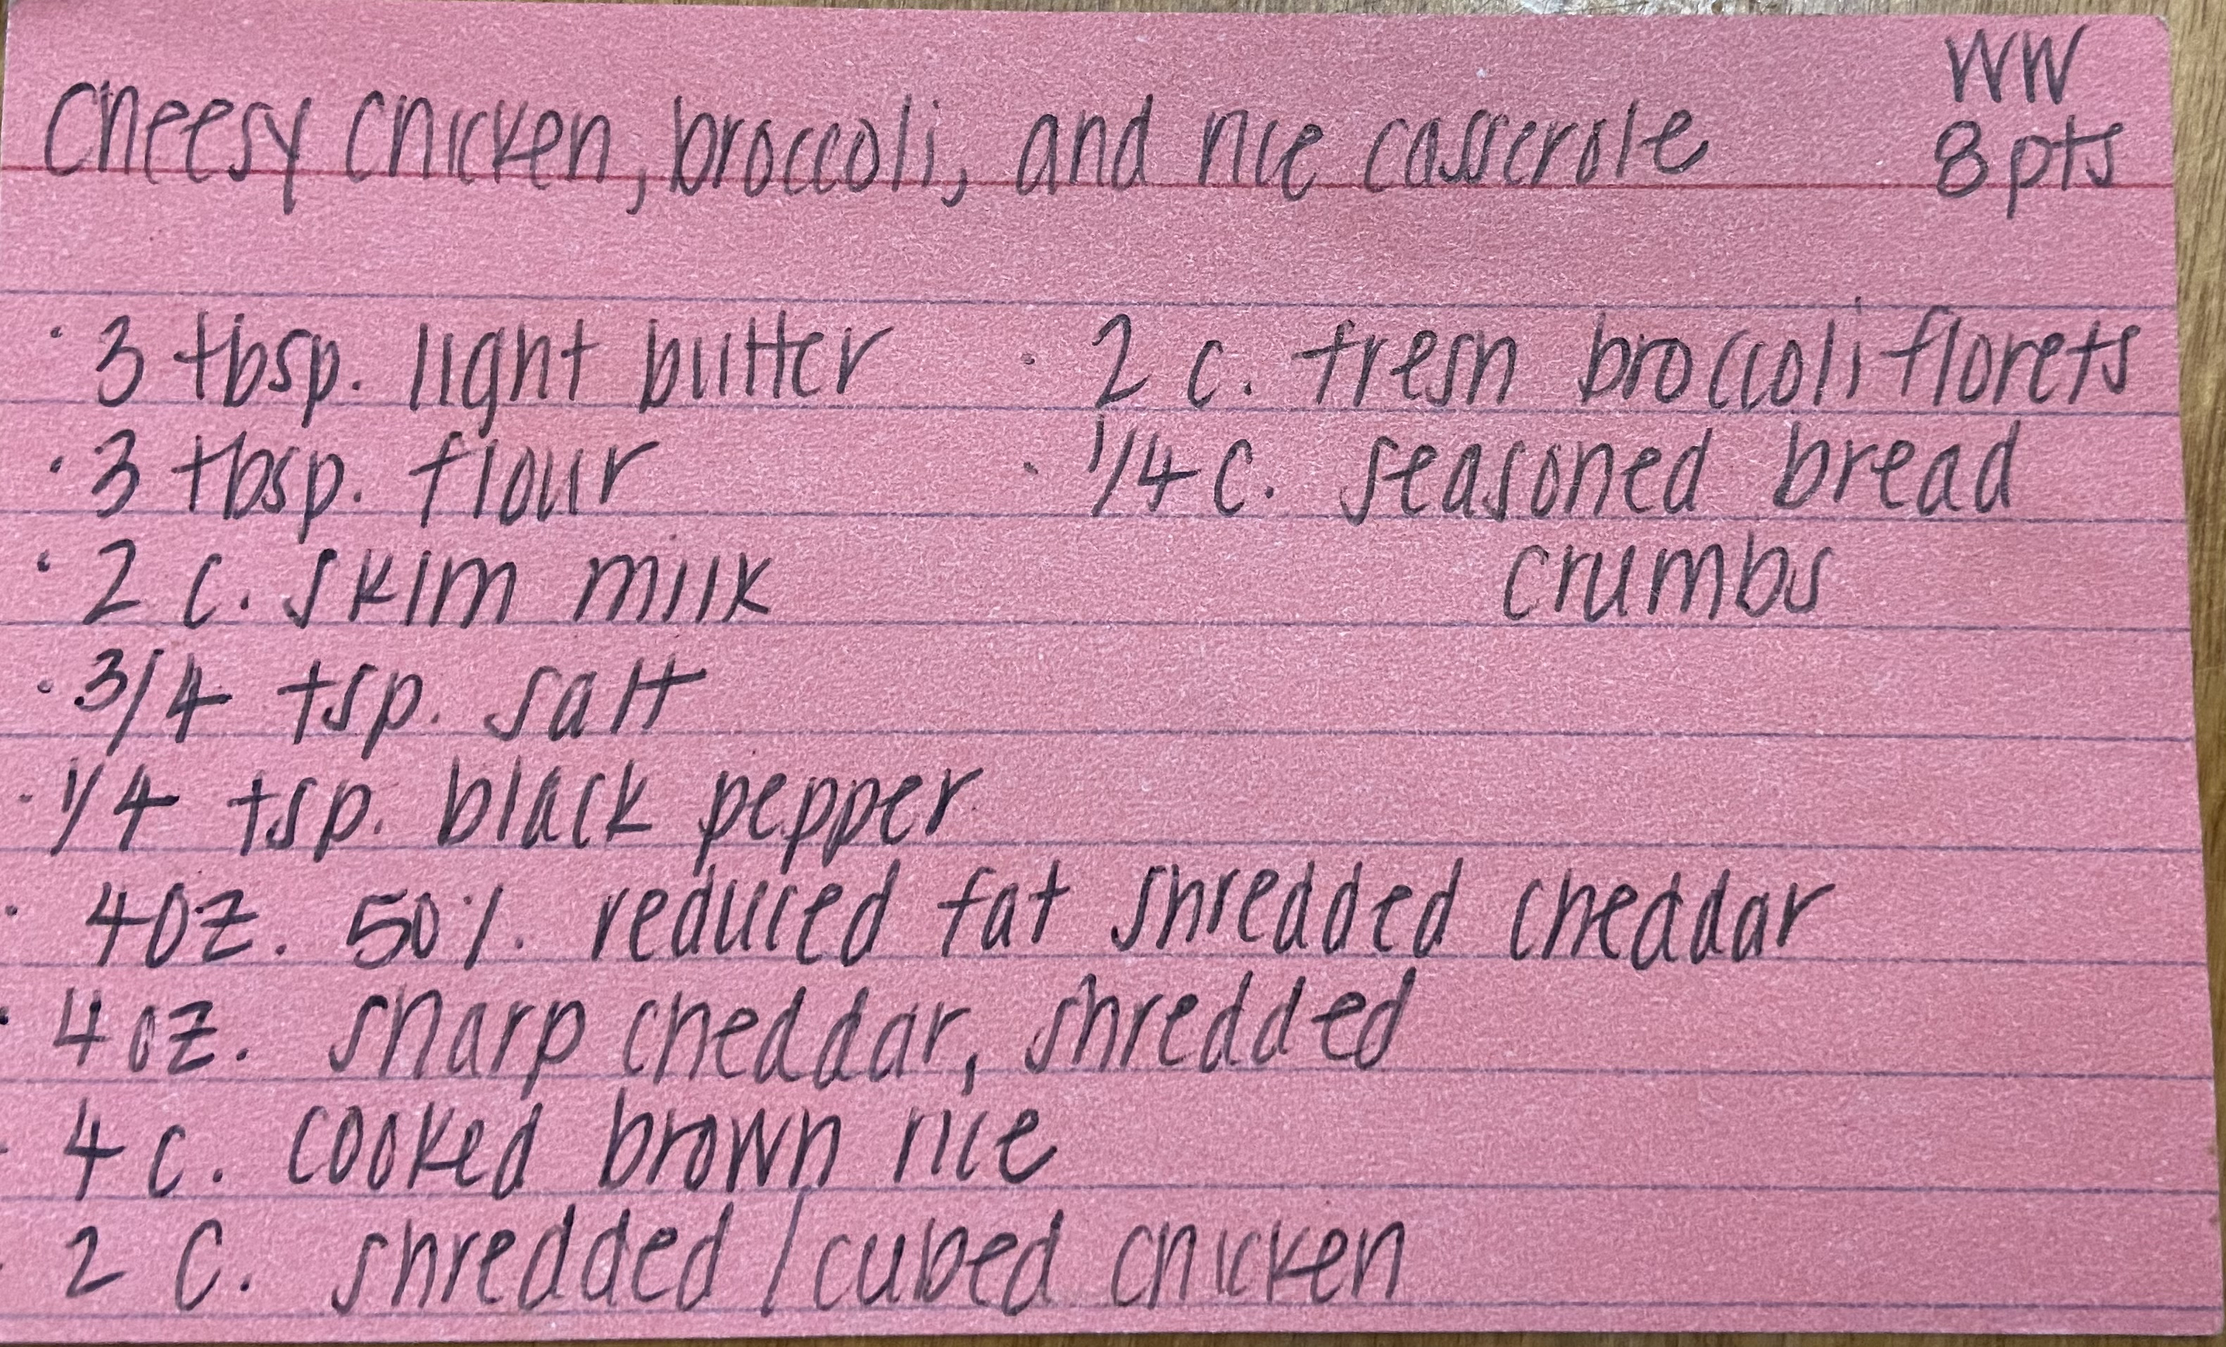 Cheesy chicken, broccoli, and rice casserole
WW
8 pts
· 3 tbsp. light butter
· 3 tbsp. flour
· 2 c. skim milk
· 3/4 tsp. salt
· 1/4 tsp. black pepper
· 4oz. 50%. reduced fat shredded cheddar
· 4oz. sharp cheddar, shredded
· 4 c. cooked brown rice
· 2 c. shredded/cubed chicken
· 2 c. fresh broccoli florets
· 1/4 c. seasoned bread
crumbs